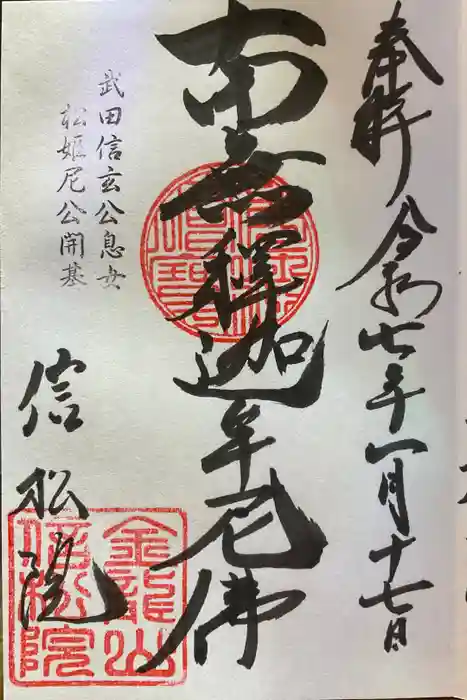 奉拝 令和七年一月十七日
南無釋迦牟尼佛
武田信玄公息女
松姫尼公開基
信松院
金龍山
信松院